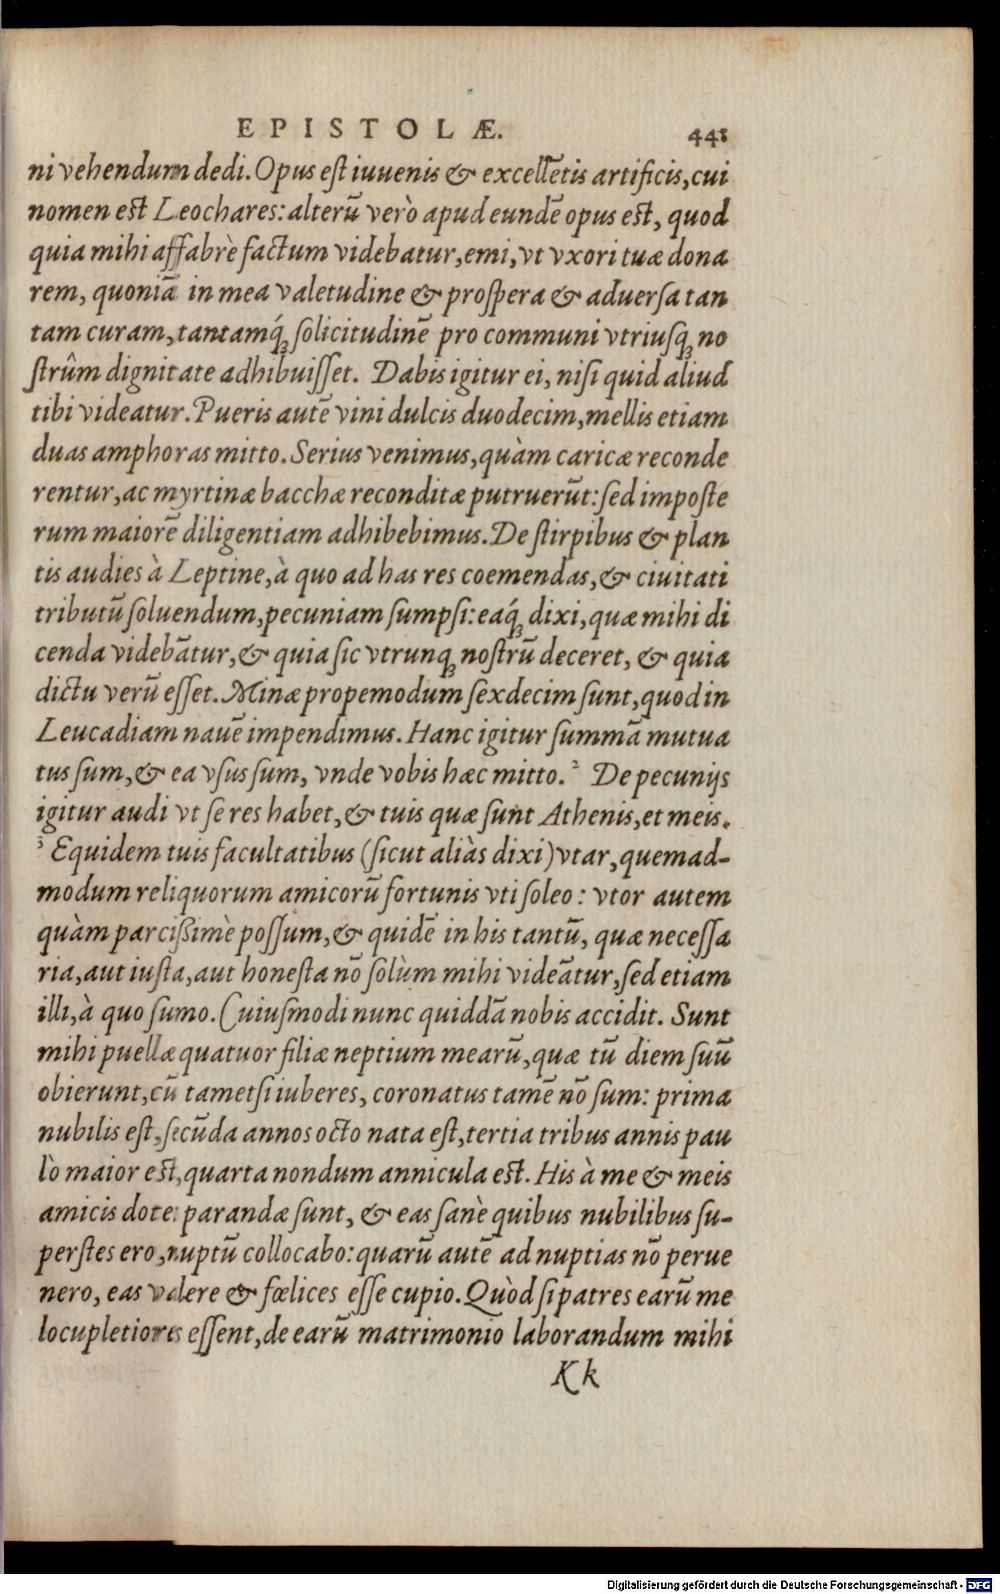 EPISTOLÆ. 441
ni vehendum dedi. Opus est iuuenis & excellẽtis artificis, cui
nomen est Leochares: alterũ verò apud eundẽ opus est, quod
quia mihi affabrè factum videbatur, emi, vt vxori tuæ dona
rem, quoniã in mea valetudine & prospera & aduersa tan
tam curam, tantamq́ꝫ solicitudinẽ pro communi vtriusqꝫ no
strûm dignitate adhibuisset. Dabis igitur ei, nisi quid aliud
tibi videatur. Pueris autẽ vini dulcis duodecim, mellis etiam
duas amphoras mitto. Serius venimus, quàm caricæ reconde
rentur, ac myrtinæ bacchæ reconditæ putruerũt: sed imposte
rum maiorẽ diligentiam adhibebimus. De stirpibus & plan
tis audies à Leptine, à quo ad has res coemendas, & ciuitati
tributũ soluendum, pecuniam sumpsi: eaq́ꝫ dixi, quæ mihi di
cenda videbãtur, & quia sic vtrunqꝫ nostrũ deceret, & quia
dictu verũ esset. Minæ propemodum sexdecim sunt, quod in
Leucadiam nauẽ impendimus. Hanc igitur summã mutua
tus sum, & ea vsus sum, vnde vobis hæc mitto. ² De pecunijs
igitur audi vt se res habet, & tuis quæ sunt Athenis, et meis.
³ Equidem tuis facultatibus (sicut aliàs dixi) vtar, quemad-
modum reliquorum amicorũ fortunis vti soleo: vtor autem
quàm parcißimè possum, & quidẽ in his tantũ, quæ necessa
ria, aut iusta, aut honesta nõ solùm mihi videãtur, sed etiam
illi, à quo sumo. Cuiusmodi nunc quiddã nobis accidit. Sunt
mihi puellæ quatuor filiæ neptium mearũ, quæ tũ diem suũ
obierunt, cũ tametsi iuberes, coronatus tamẽ nõ sum: prima
nubilis est, secũda annos octo nata est, tertia tribus annis pau
lò maior est, quarta nondum annicula est. His à me & meis
amicis dotes parandæ sunt, & eas sanè quibus nubilibus su-
perstes ero, nuptũ collocabo: quarũ autẽ ad nuptias nõ perue
nero, eas valere & fœlices esse cupio. Quòd si patres earũ me
locupletiores essent, de earũ matrimonio laborandum mihi
Kk
Digitalisierung gefördert durch die Deutsche Forschungsgemeinschaft - DFG